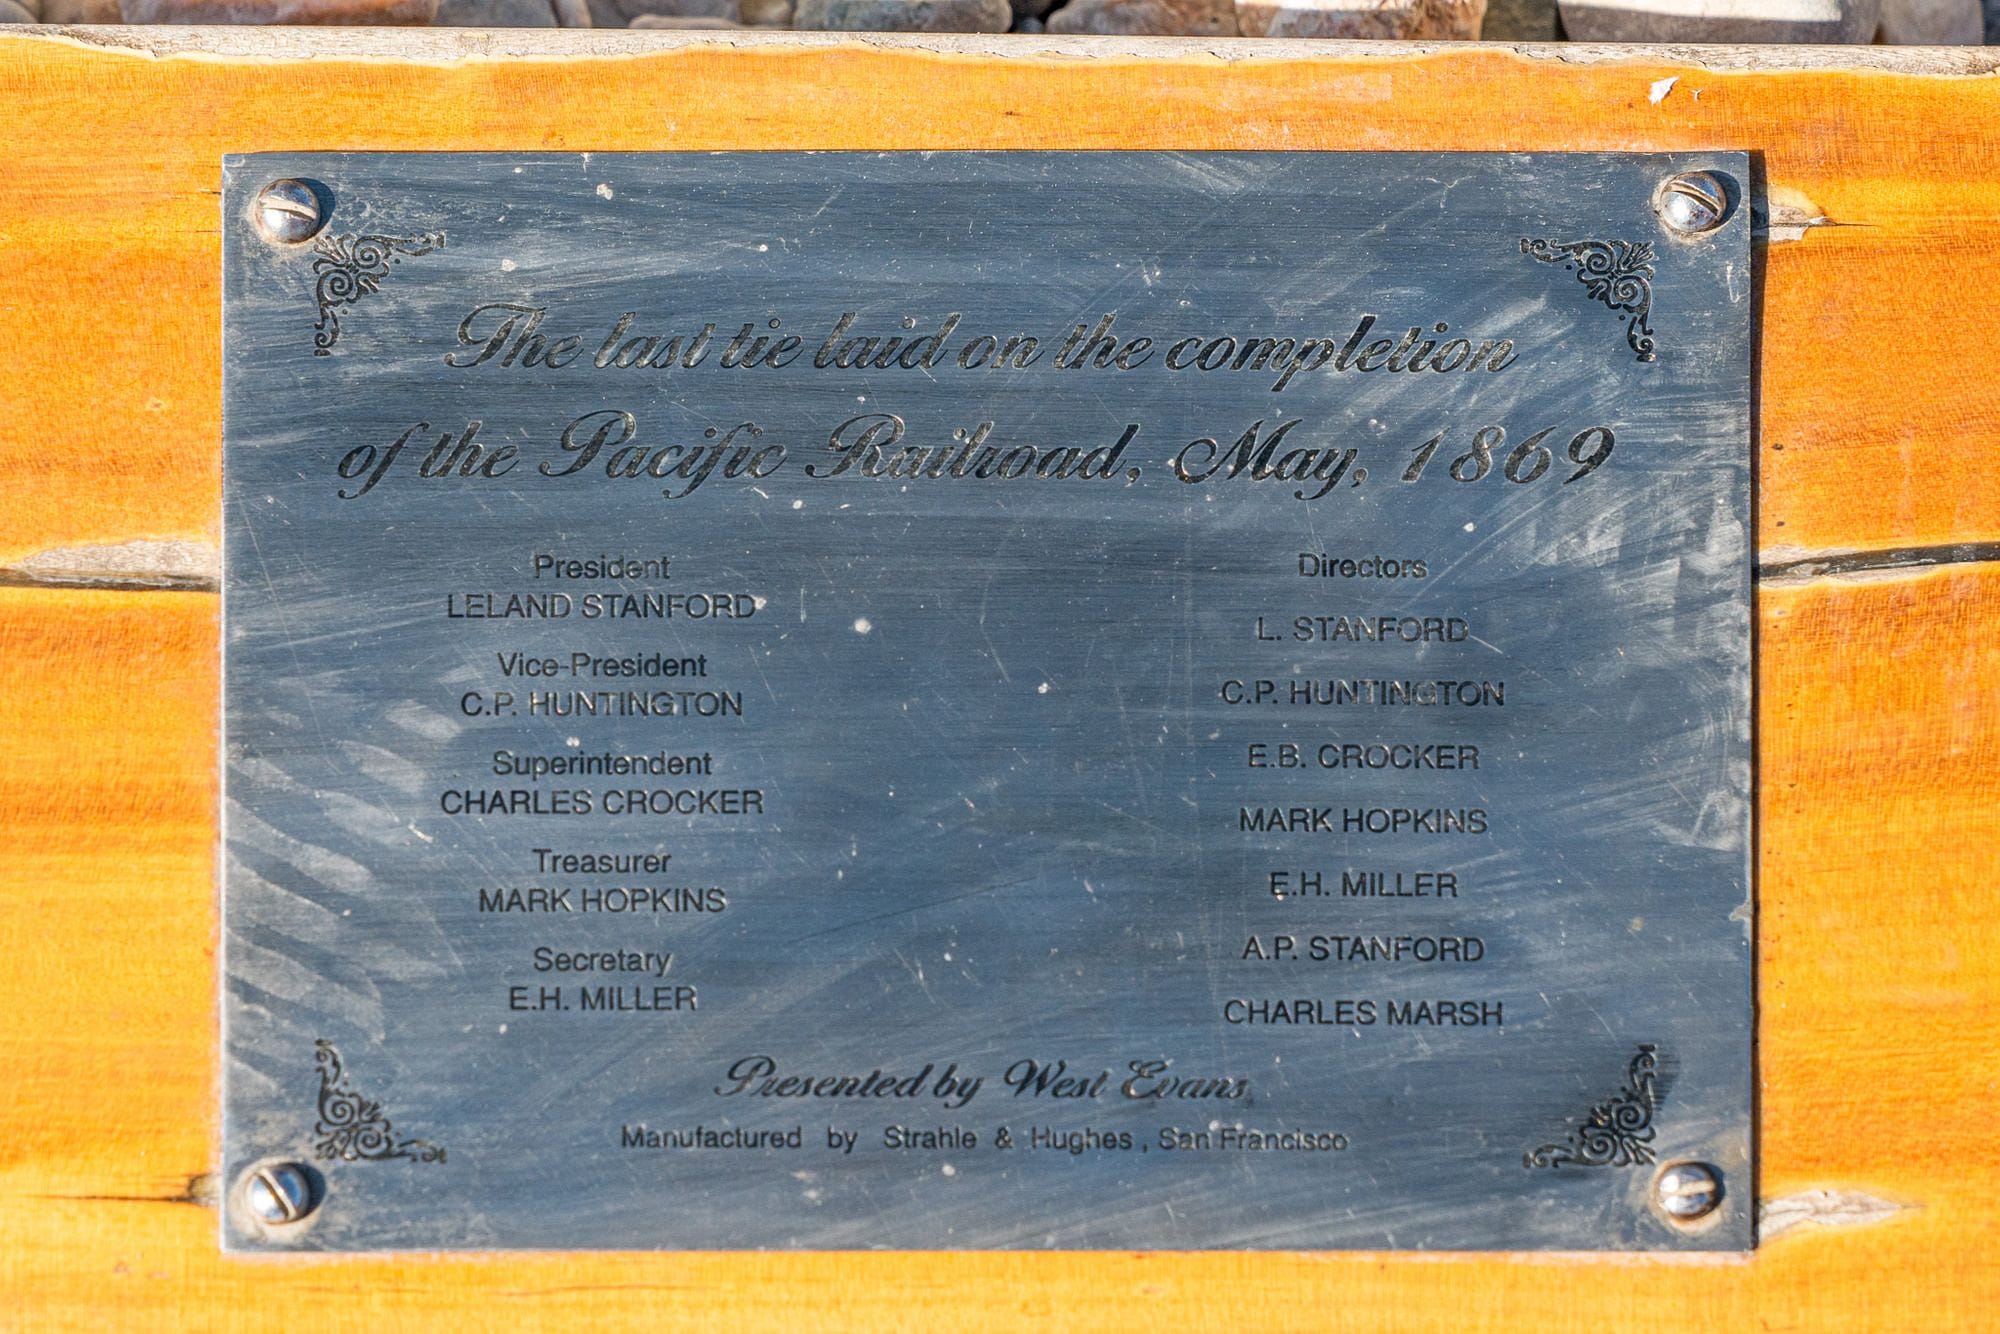 The last tie laid on the completion
of the Pacific Railroad, May, 1869
President
LELAND STANFORD
Vice-President
C.P. HUNTINGTON
Superintendent
CHARLES CROCKER
Treasurer
MARK HOPKINS
Secretary
E.H. MILLER
Directors
L. STANFORD
C.P. HUNTINGTON
E.B. CROCKER
MARK HOPKINS
E.H. MILLER
A.P. STANFORD
CHARLES MARSH
Presented by West Evans
Manufactured by Strahle & Hughes, San Francisco